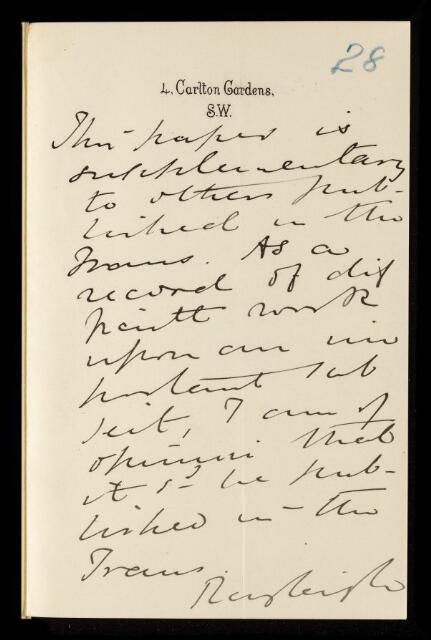 28
4, Carlton Gardens,
S.W.
This paper is
supplementary
to others pub-
lished in the
Trans. As a
record of dif
ficult work
upon an im
portant sub
ject, I am of
opinion that
it sd be pub-
lished in the
Trans.
Rayleigh